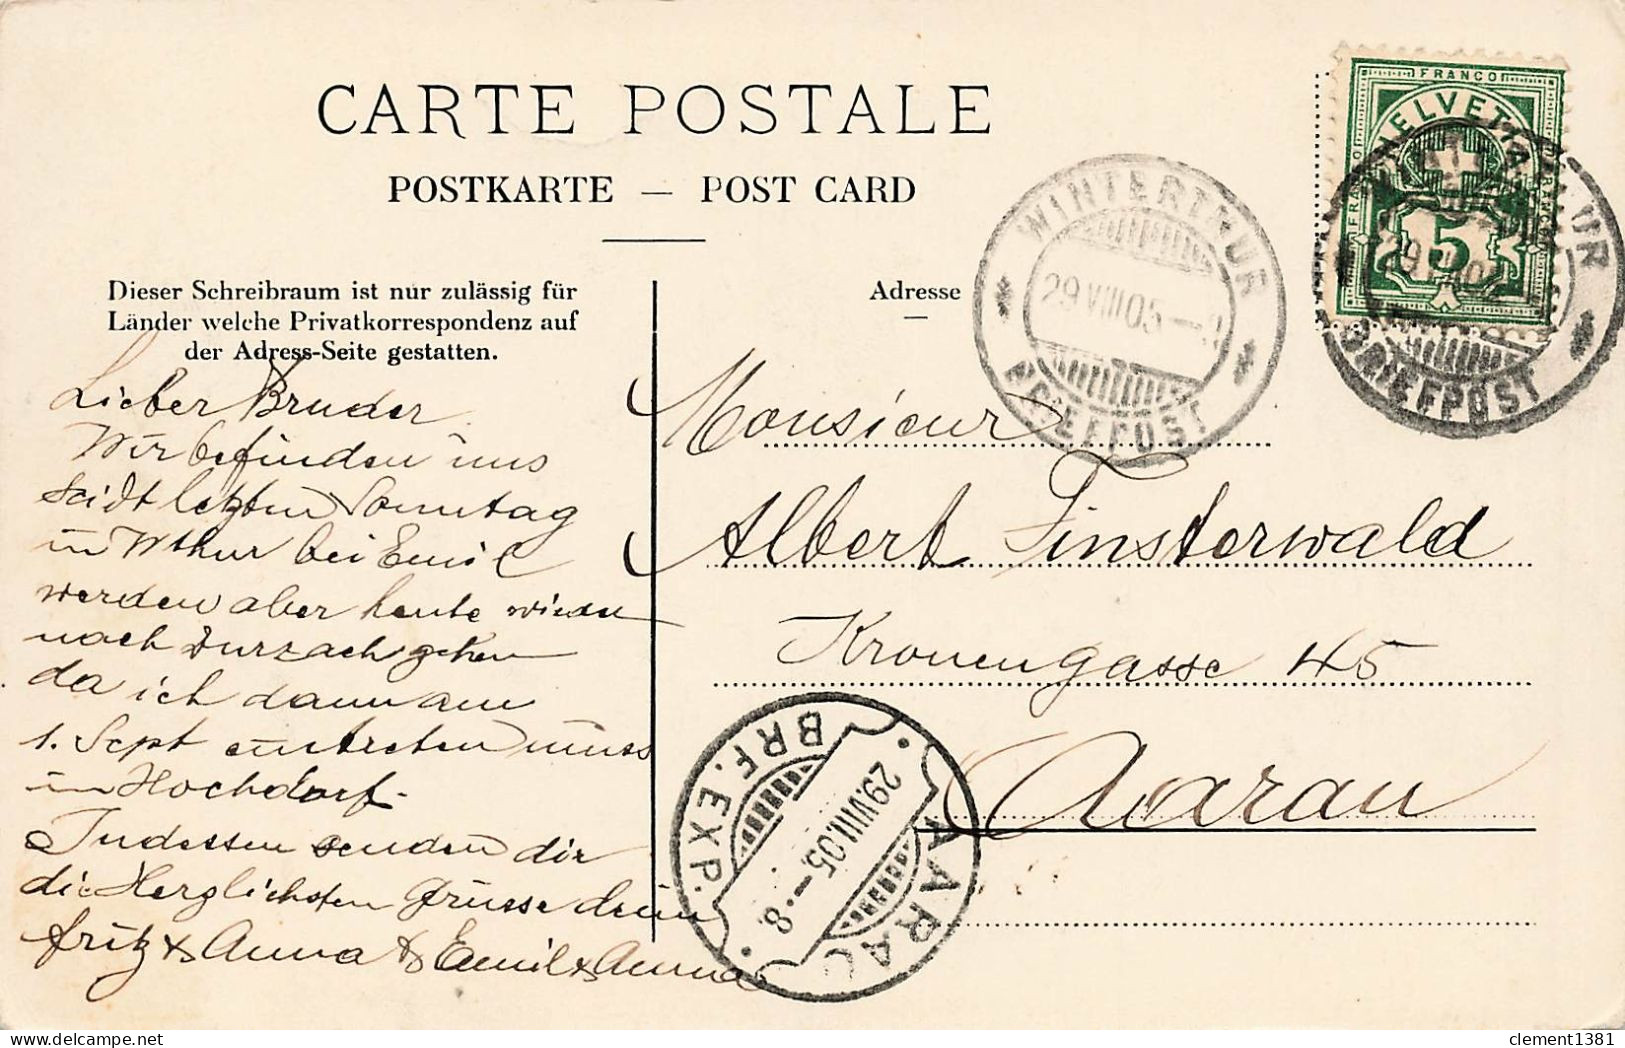 CARTE POSTALE
POSTKARTE — POST CARD
Dieser Schreibraum ist nur zulässig für
Länder welche Privatkorrespondenz auf
der Adress-Seite gestatten.
Adresse
FRANCO
HELVETIA
FRANCO
FRANCO
5
WINTERTHUR
29 VIII 05
BRIEFPOST
WINTERTHUR
29 VIII 05
BRIEFPOST
Lieber Bruder
Wir befinden uns
seidt letzten Sonntag
in Wthur bei Emil
werden aber heute wieder
nach Zurzach gehen
da ich dann am
1. Sept eintreten muss
in Hochdorf.
Indessen senden dir
die Herzlichsten Grüsse dein
Fritz & Anna & Emil & Anna
Monsieur
Albert Finsterwald
Kronengasse 45
Aarau
AARAU
29.VIII.05.–.8
BRF. EXP.
clement1381